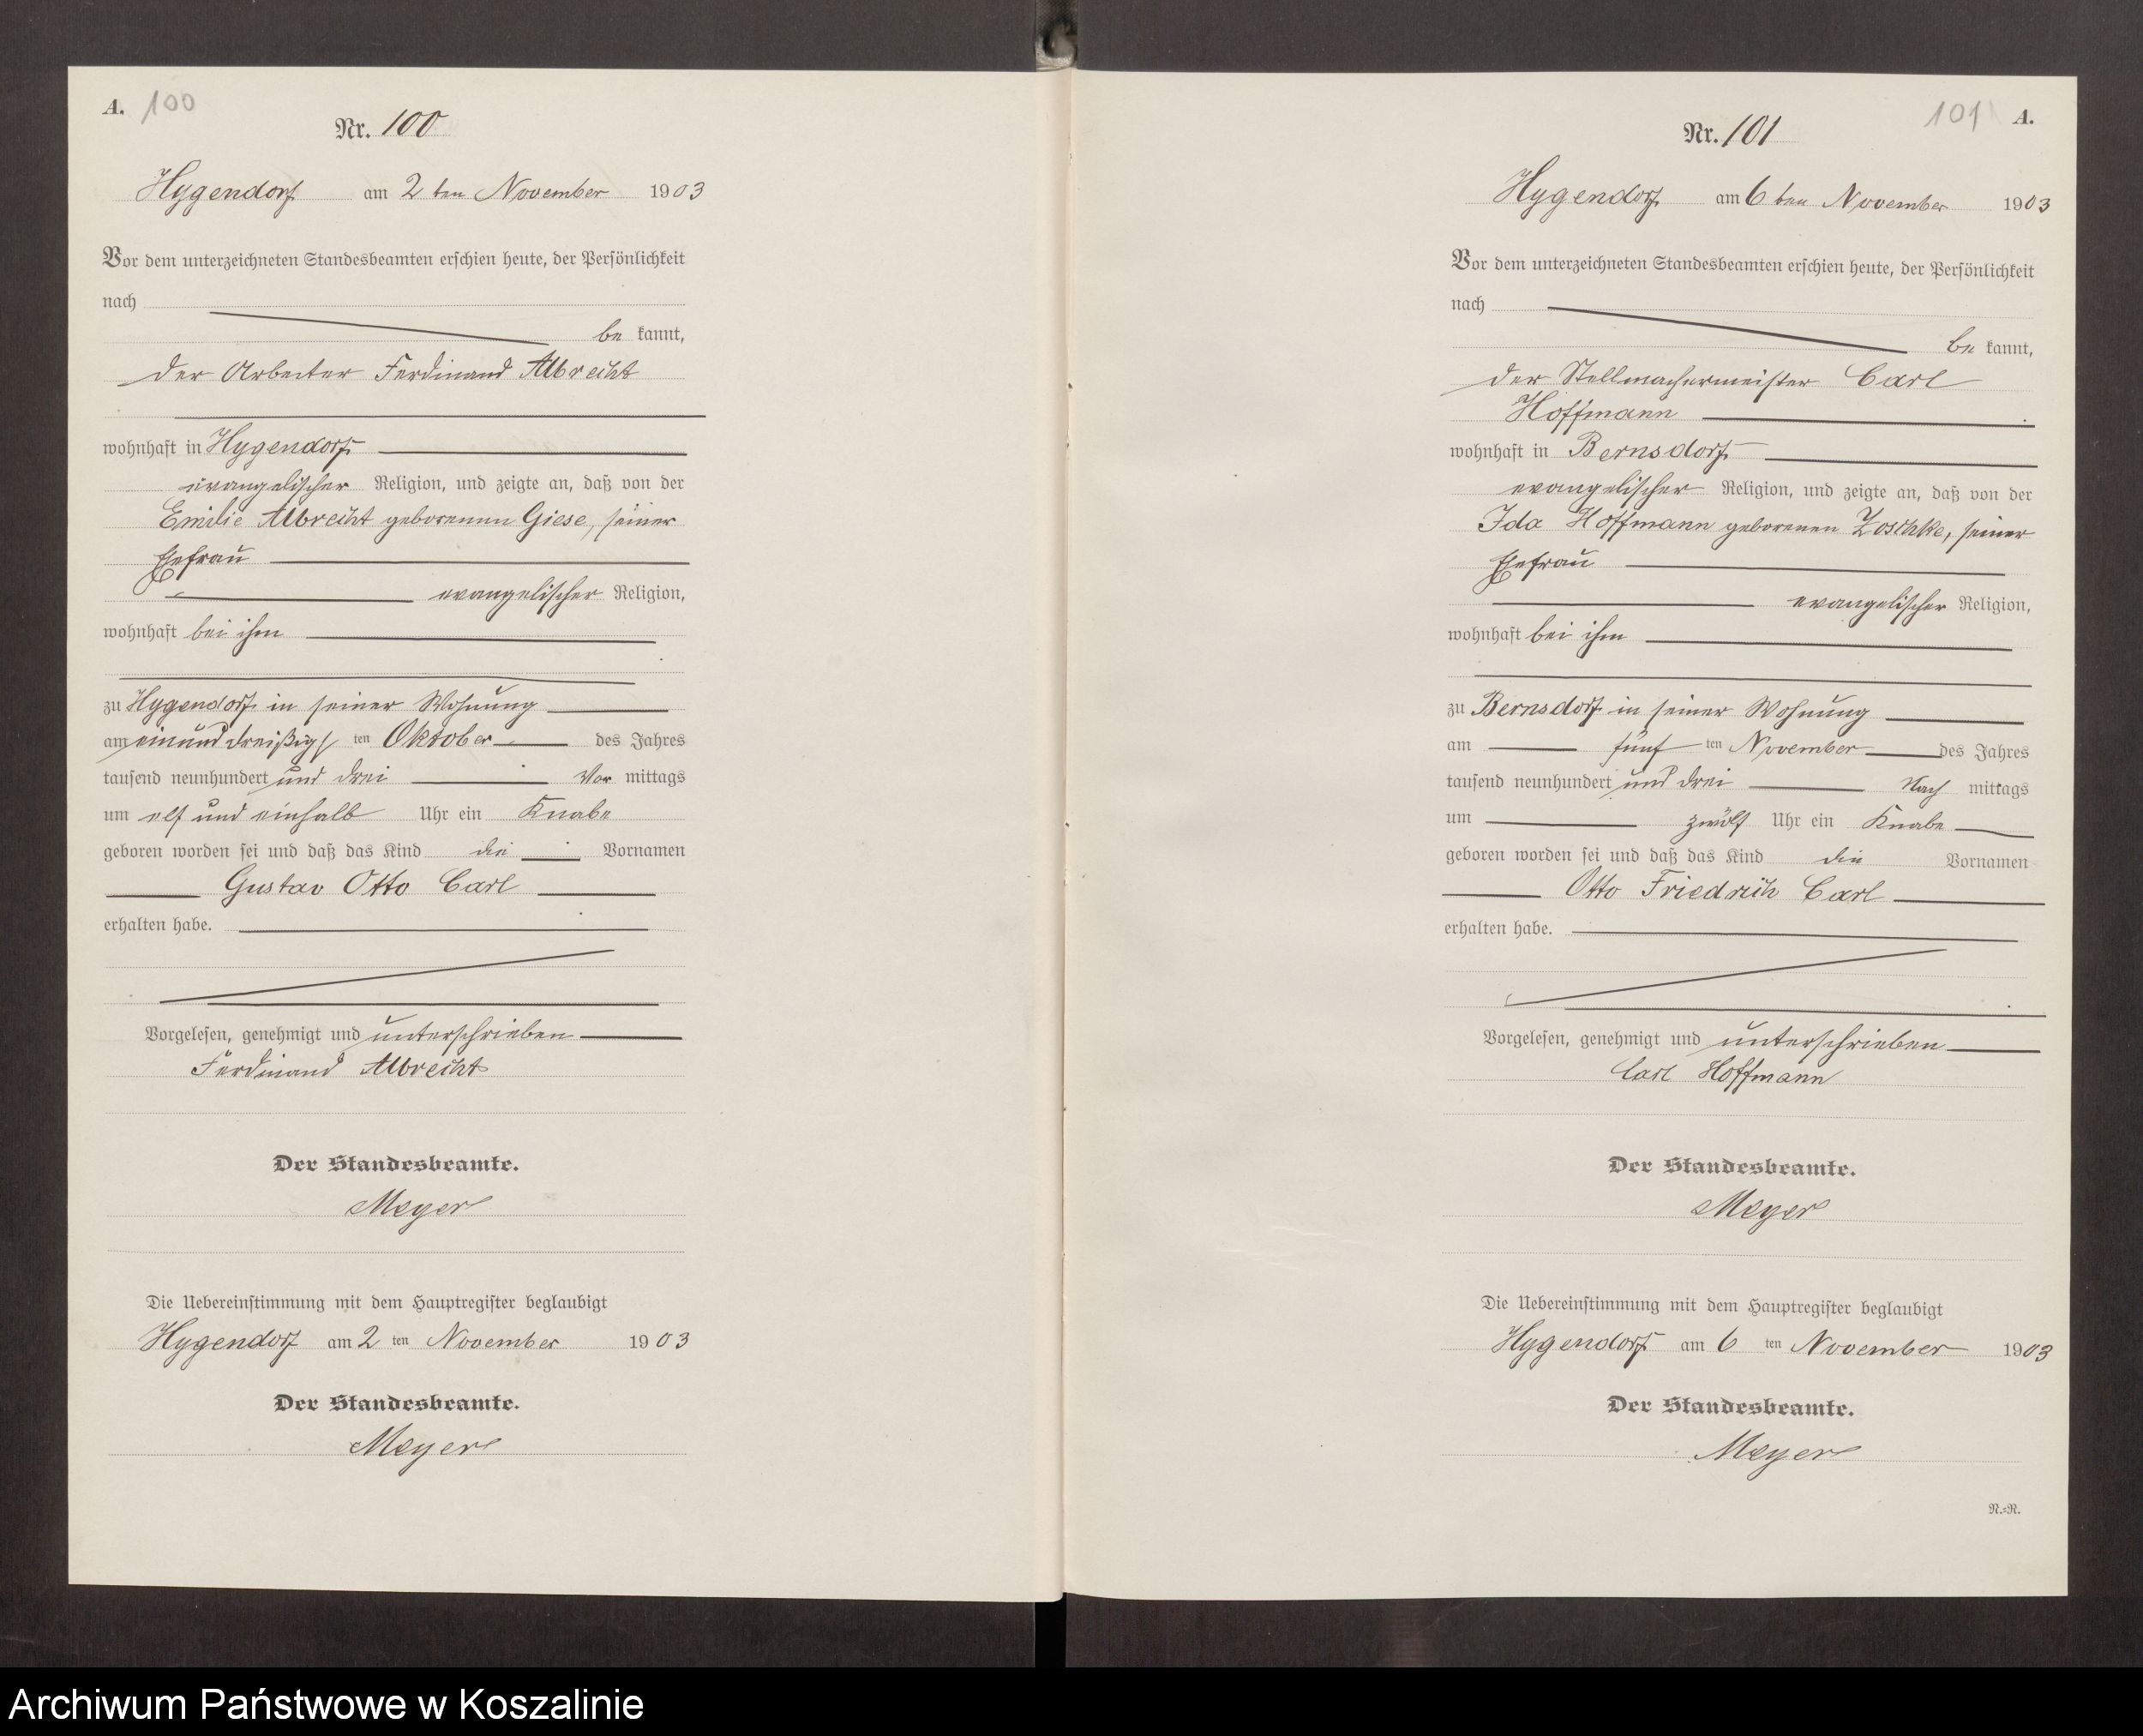 A. 100
Nr. 100
Hygendorf am 2 ten November 1903
Vor dem unterzeichneten Standesbeamten erschien heute, der Persönlichkeit
nach
be kannt,
der Arbeiter Ferdinand Albrecht
wohnhaft in Hygendorf
evangelischer Religion, und zeigte an, daß von der
Emilie Albrecht geborenen Giese, seiner
Ehefrau
evangelischer Religion,
wohnhaft bei ihm
zu Hygendorf in seiner Wohnung
am einunddreißigs ten Oktober des Jahres
tausend neunhundert und drei Vor mittags
um elf und einhalb Uhr ein Knabe
geboren worden sei und daß das Kind die Vornamen
Gustav Otto Carl
erhalten habe.
Vorgelesen, genehmigt und unterschrieben
Ferdinand Albrecht
Der Standesbeamte.
Meyer
Die Uebereinstimmung mit dem Hauptregister beglaubigt
Hygendorf am 2 ten November 1903
Der Standesbeamte.
Meyer
101 A.
Nr. 101
Hygendorf am 6 ten November 1903
Vor dem unterzeichneten Standesbeamten erschien heute, der Persönlichkeit
nach
be kannt,
der Stellmachermeister Carl
Hoffmann
wohnhaft in Bernsdorf
evangelischer Religion, und zeigte an, daß von der
Ida Hoffmann geborenen Zoschke, seiner
Ehefrau
evangelischer Religion,
wohnhaft bei ihm
zu Bernsdorf in seiner Wohnung
am fünf ten November des Jahres
tausend neunhundert und drei Nach mittags
um zwölf Uhr ein Knabe
geboren worden sei und daß das Kind die Vornamen
Otto Friedrich Carl
erhalten habe.
Vorgelesen, genehmigt und unterschrieben
Carl Hoffmann
Der Standesbeamte.
Meyer
Die Uebereinstimmung mit dem Hauptregister beglaubigt
Hygendorf am 6 ten November 1903
Der Standesbeamte.
Meyer
N.=R.
Archiwum Państwowe w Koszalinie